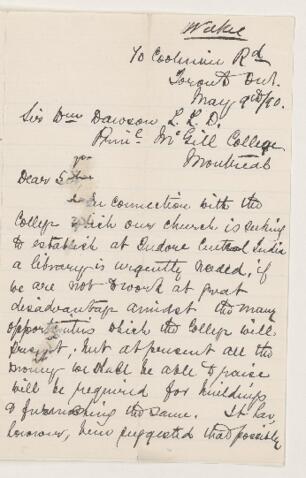 Wilkie
Rd
Toronto Ont.
May 9th/90.
Sir Wm Dawson L.L.D.
Prinl. McGill College
Montreal
Dear Sir
In connection with the
College which our church is seeking
to establish at Indore Central India
a library is urgently needed, if
we are not to work at great
disadvantage amidst the many
opportunities which the College will
present, but at present all the
money we shall be able to raise
will be required for buildings
& furnishing the same. It has,
however, been suggested that possibly